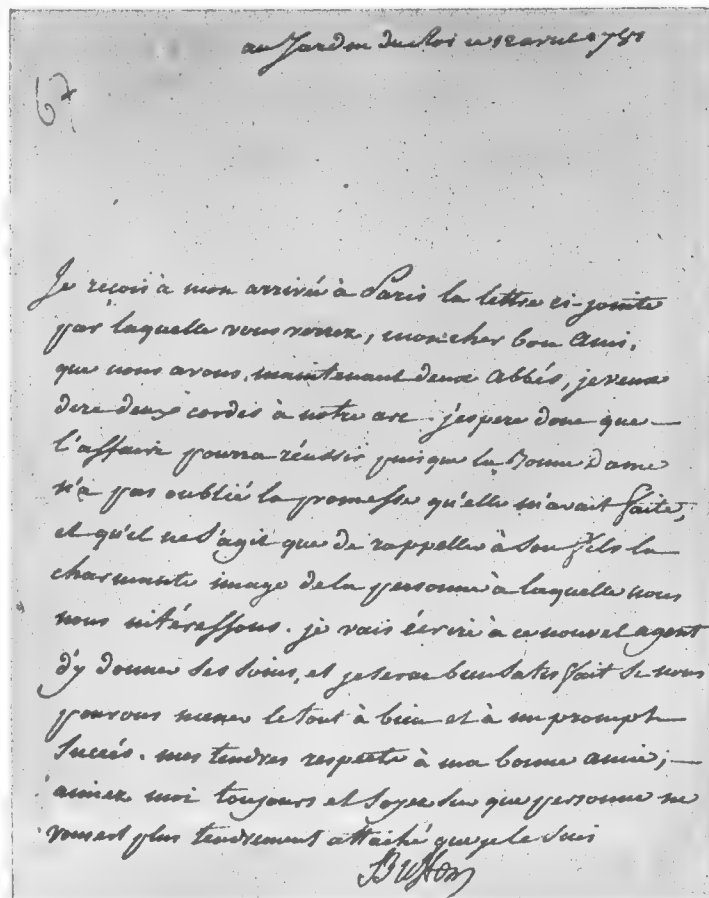 au Jardin du Roi ce 12 avril
67
Je reçois à mon arrivée à Paris la lettre ci-jointe
par laquelle vous verrez, mon cher bon ami,
que nous avons, maintenant deux abbés, je veux
dire deux cordes à notre arc. j'espere donc que
l'affaire pourra réussir puisque la Bonne Dame
n'a pas oublié la promesse qu'elle m'avait faite,
et qu'il ne s'agit que de rappeller à son fils la
charmante image de la personne à laquelle nous
nous intéressons. je vais écrire à ce nouvel agent
d'y donner ses soins, et je serai bien satisfait si nous
pouvons mener le tout à bien et à un prompt
succés. mes tendres respects à ma bonne amie;
aimez moi toujours et soyez sur que personne ne
vous est plus tendrement attaché que je le suis
Buffon